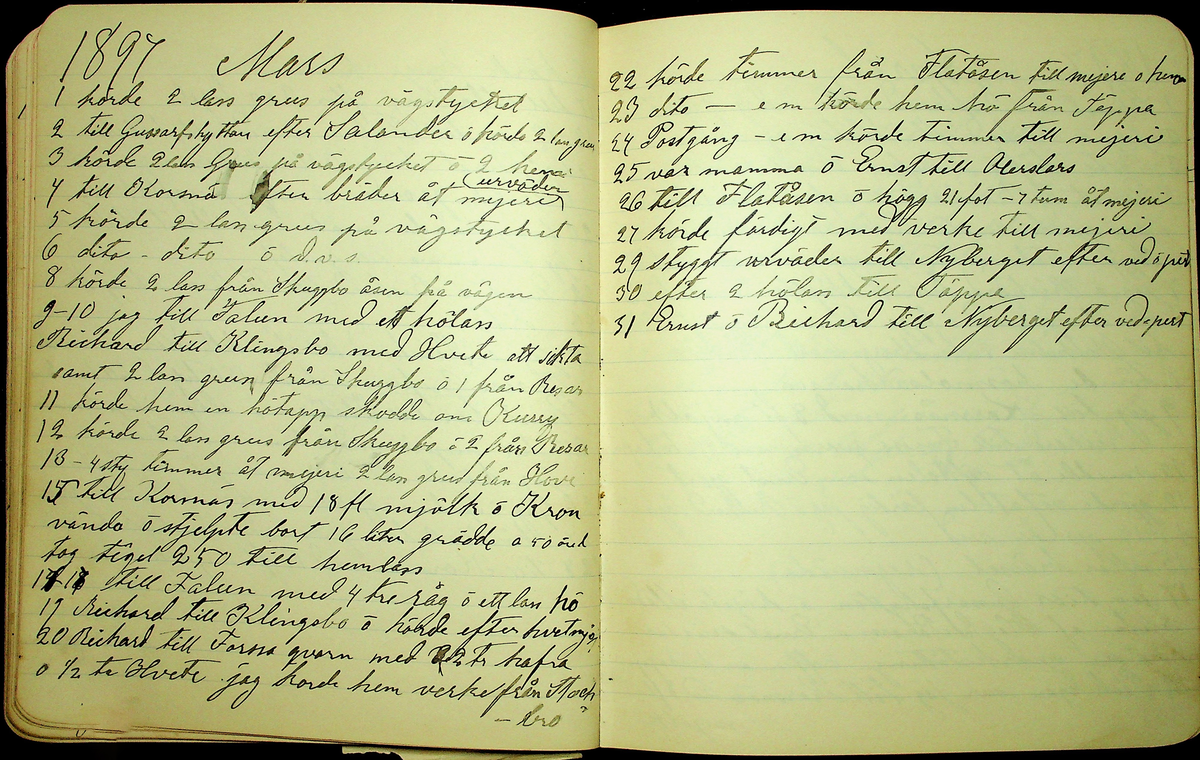 1897 Mars
1 körde 2 lass grus på vägstycket
2 till Gussarfshyttan efter Salander ö körde 2 lass grus
3 körde 2 lass Grus på vägstycket ö 2 hem
urväder
4 till Korsnä efter bräder åt mejeri
5 körde 2 lass grus på vägstycket
6 dito - dito ö d.v.s.
8 körde 2 lass från Skuggbo åsen på vägen
9-10 jag till Falun med ett hölass
Richard till Klingsbo med Hvete att sikta
samt 2 lass grus från Skuggbo ö 1 från
11 körde hem en hötapp skodde om Kurry
12 körde 2 lass grus från Skuggbo ö 2 från
13 - 4 sty timmer åt mejeri 2 lass grus från
15 till Kornäs med 18 fl mjölk ö Kron
vända ö stjelpte bort 16 liter grädde a 50
tog tegel 250 till hemlass
till Falun med 4 tr råg ö ett lass hö
19 Richard till Klingsbo ö körde efter hvetmjöl
20 Richard till Forssa qvarn med 2 tr hafra
o 1/2 tr Hvete jag körde hem verke från Stock
- bro
22 körde timmer från Flatåsen till mejere o hem
23 dito — e m körde hem hö från Täppa
24 Postgång - e m körde timmer till mejeri
25 var mamma ö Ernst till Olerslars
26 till Flatåsen ö högg 21 fot - 7 tum åt mejeri
27 körde färdigt med verke till mejeri
29 stygt urväder till Nyberget efter ved ö pert
30 efter 2 hölass till Täppa
31 Ernst ö Richard till Nyberget efter ved o pert